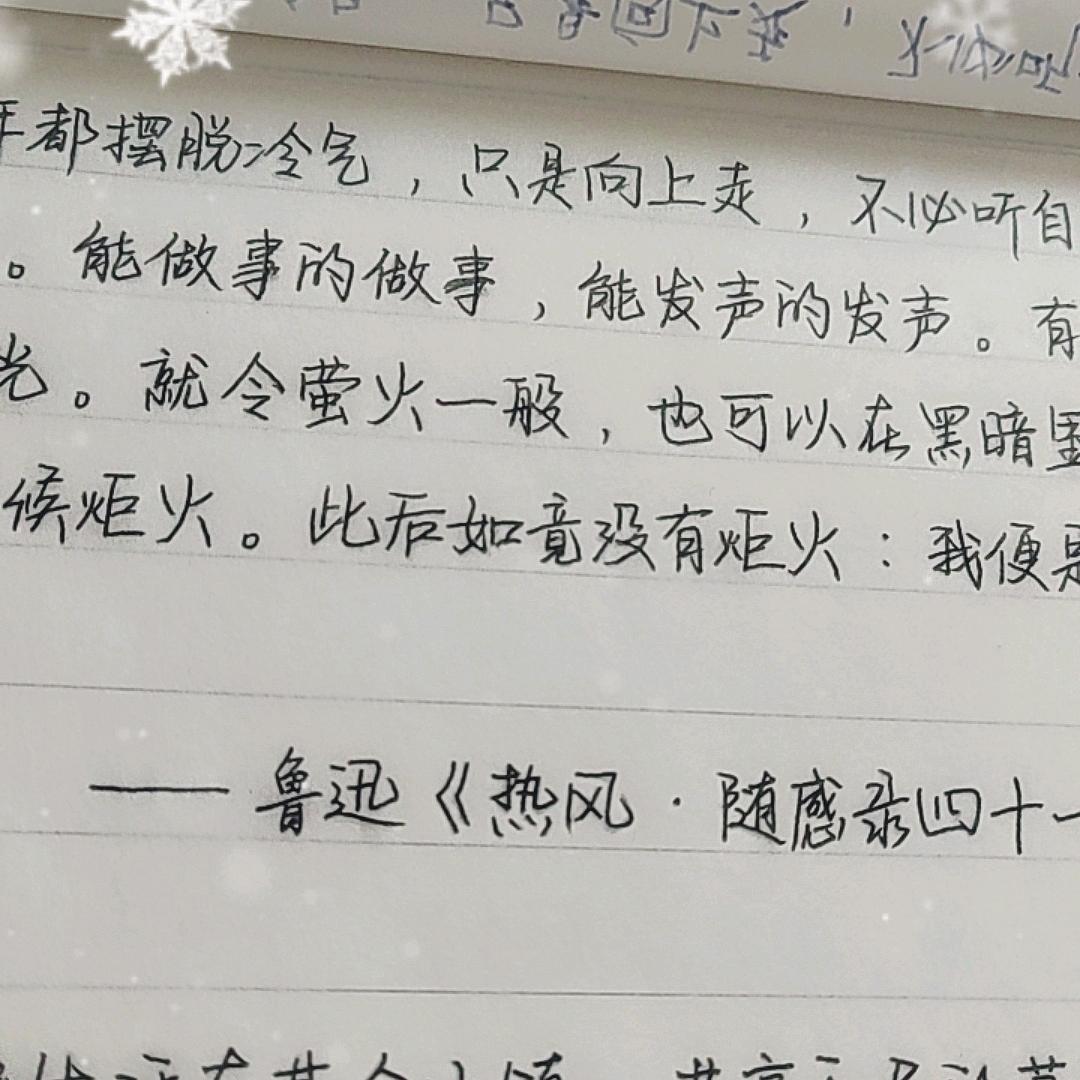 都摆脱冷气，只是向上走，不必听自
。能做事的做事，能发声的发声。有
光。就令萤火一般，也可以在黑暗里
候炬火。此后如竟没有炬火：我便是
——鲁迅《热风·随感录四十一